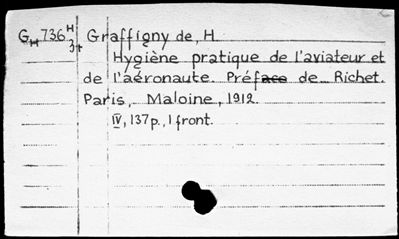 G 736 H Graffigny de, H.
Hygiène pratique de l'aviateur et
de l'aéronaute. Préface de Richet.
Paris, Maloine, 1912.
IV, 137 p., 1 front.